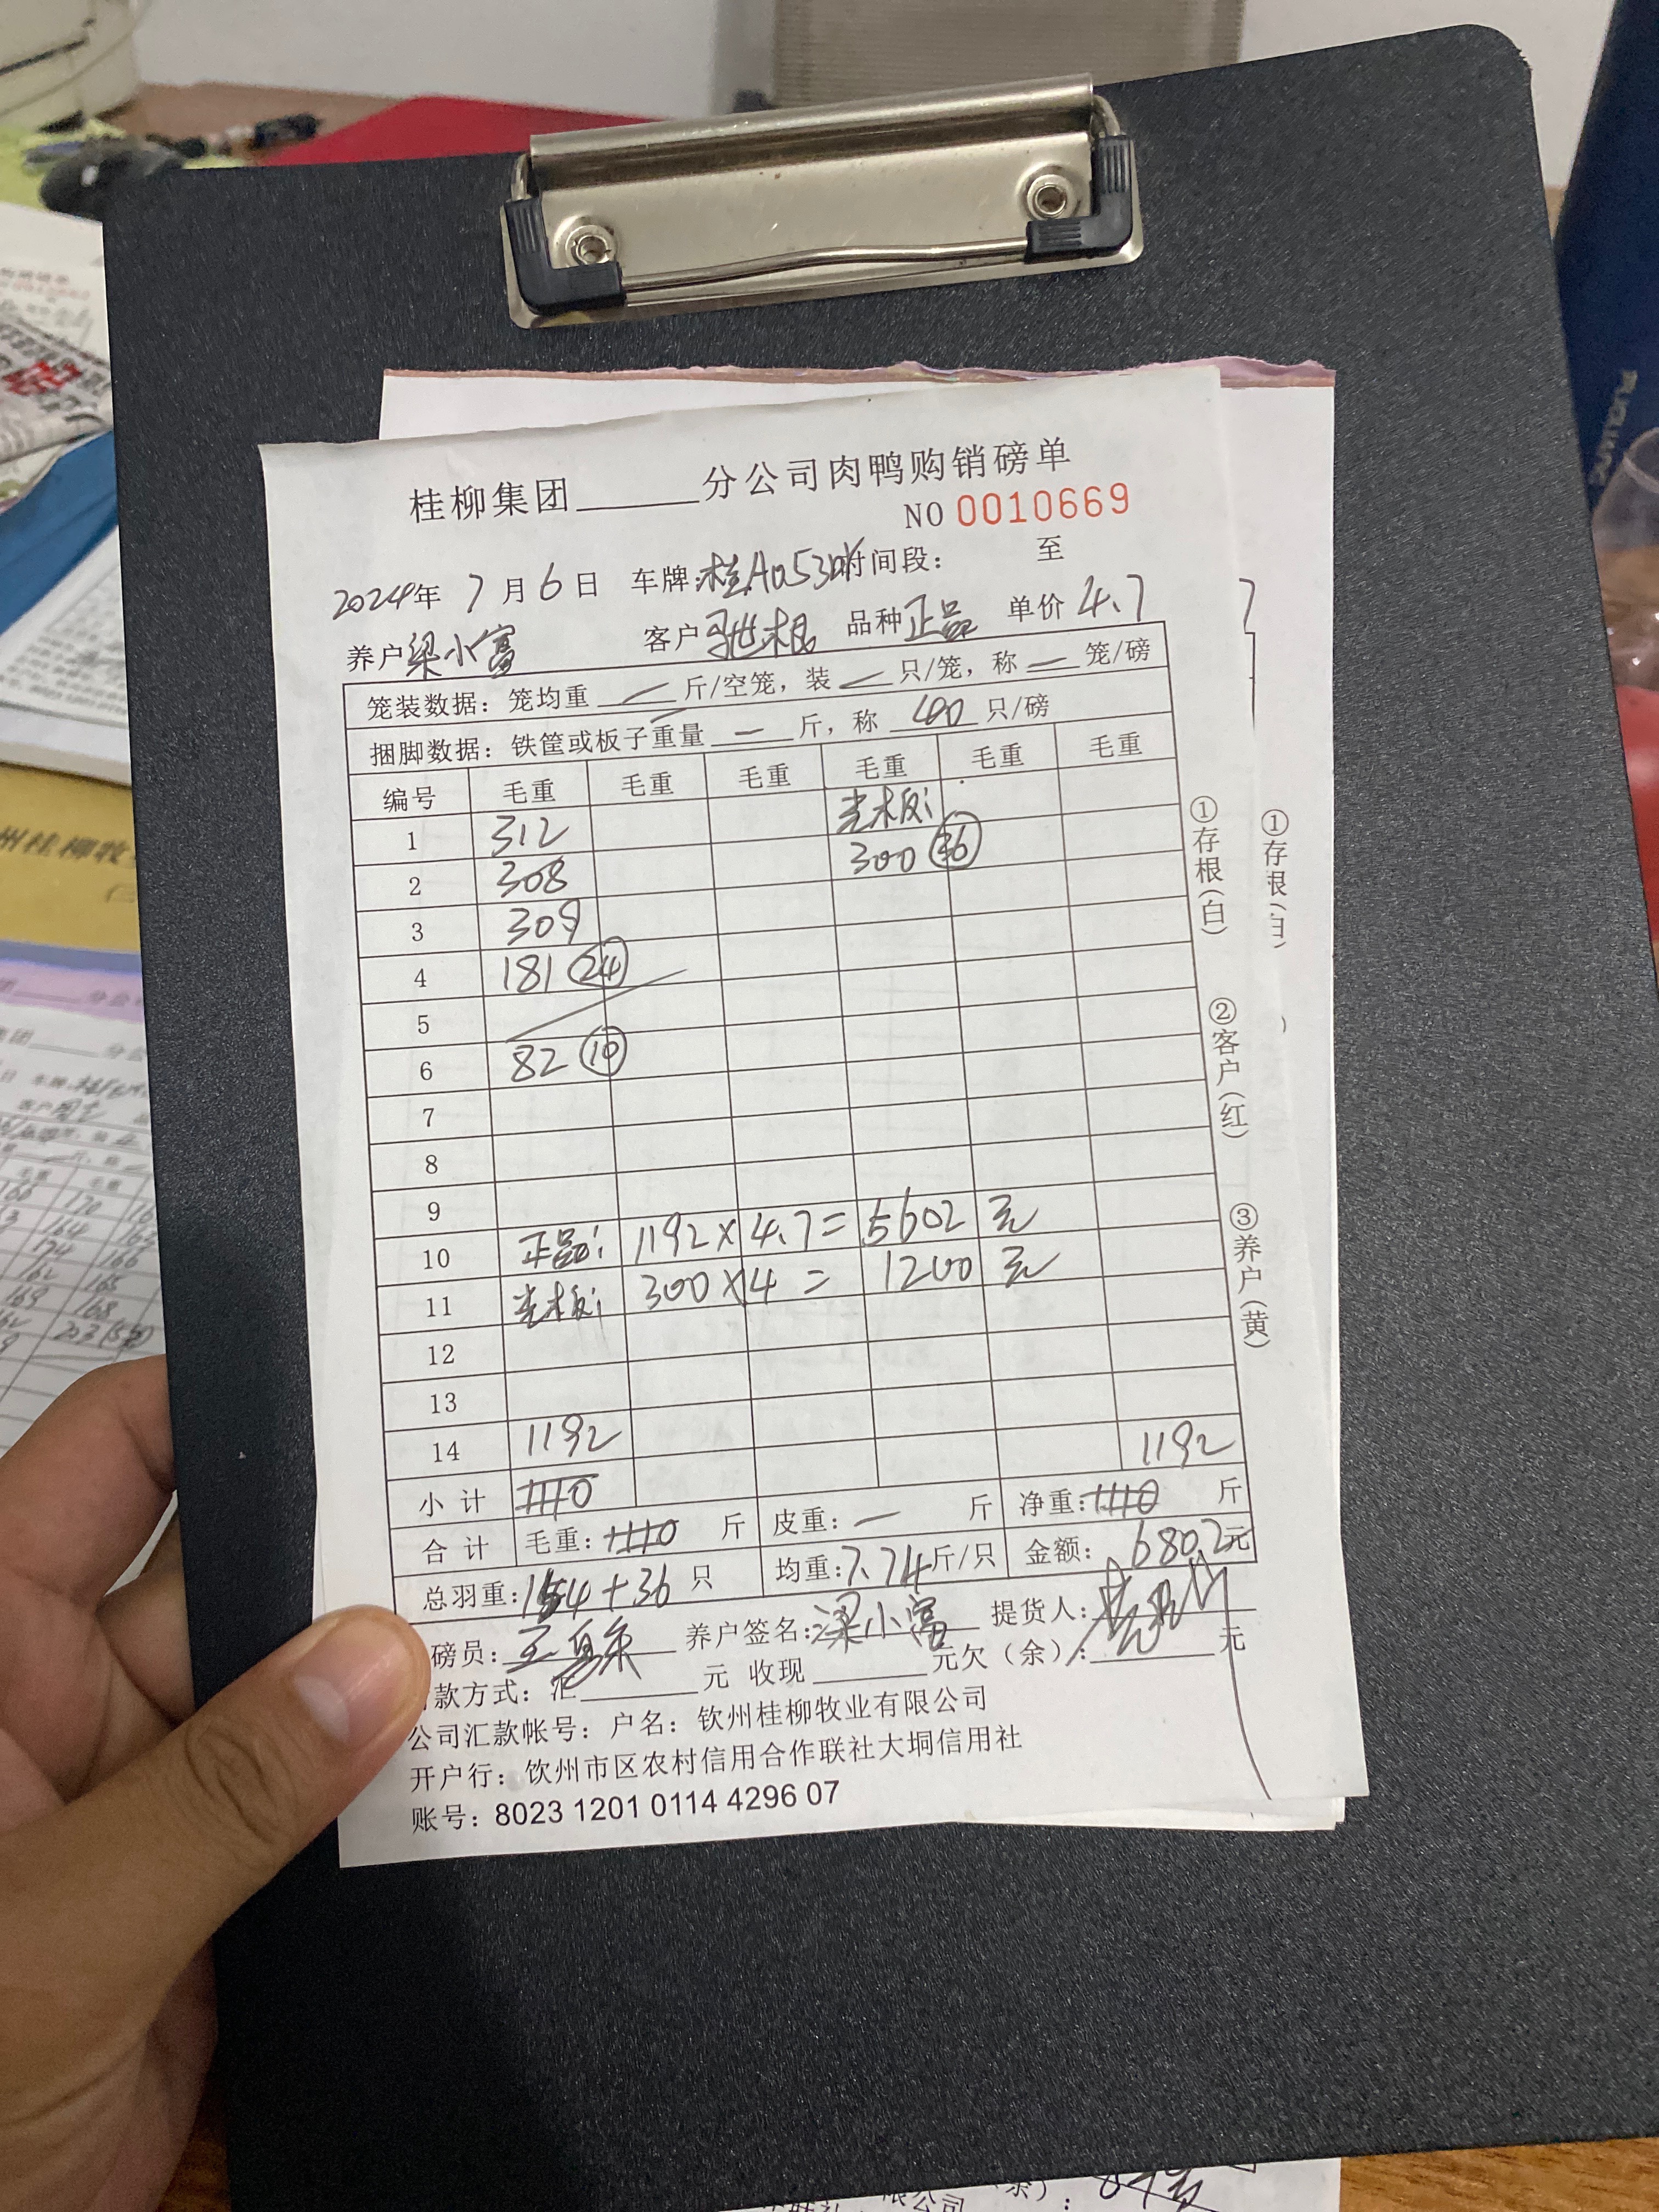 桂柳集团______分公司肉鸭购销磅单
NO 0010669
2024年 7月6日 车牌:桂A053 时间段: 至
养户 梁小富 客户 品种 正品 单价 4.7
笼装数据: 笼均重 — 斤/空笼, 装 — 只/笼, 称 — 笼/磅
捆脚数据: 铁筐或板子重量 — 斤, 称 400 只/磅
编号 毛重 毛重 毛重 毛重 毛重 毛重
1 312 光板:
2 308 300 (36)
3 309
4 181 (24)
5
6 82 (10)
7
8
9
10 正品: 1192 × 4.7 = 5602 元
11 光板: 300 × 4 = 1200 元
12
13
14 1192 1192
小 计 1110
合 计 毛重: 1110 斤 皮重: — 斤 净重: 1110 斤
总羽重: 154+36 只 均重: 7.74斤/只 金额: 6802元
磅员: 养户签名: 梁小富 提货人:
款方式: 汇______元 收现______元欠（余）:______元
公司汇款帐号: 户名: 钦州桂柳牧业有限公司
开户行: 钦州市区农村信用合作联社大垌信用社
账号: 8023 1201 0114 4296 07
①存根(白) ②客户(红) ③养户(黄)
①存根(白)
州桂柳牧